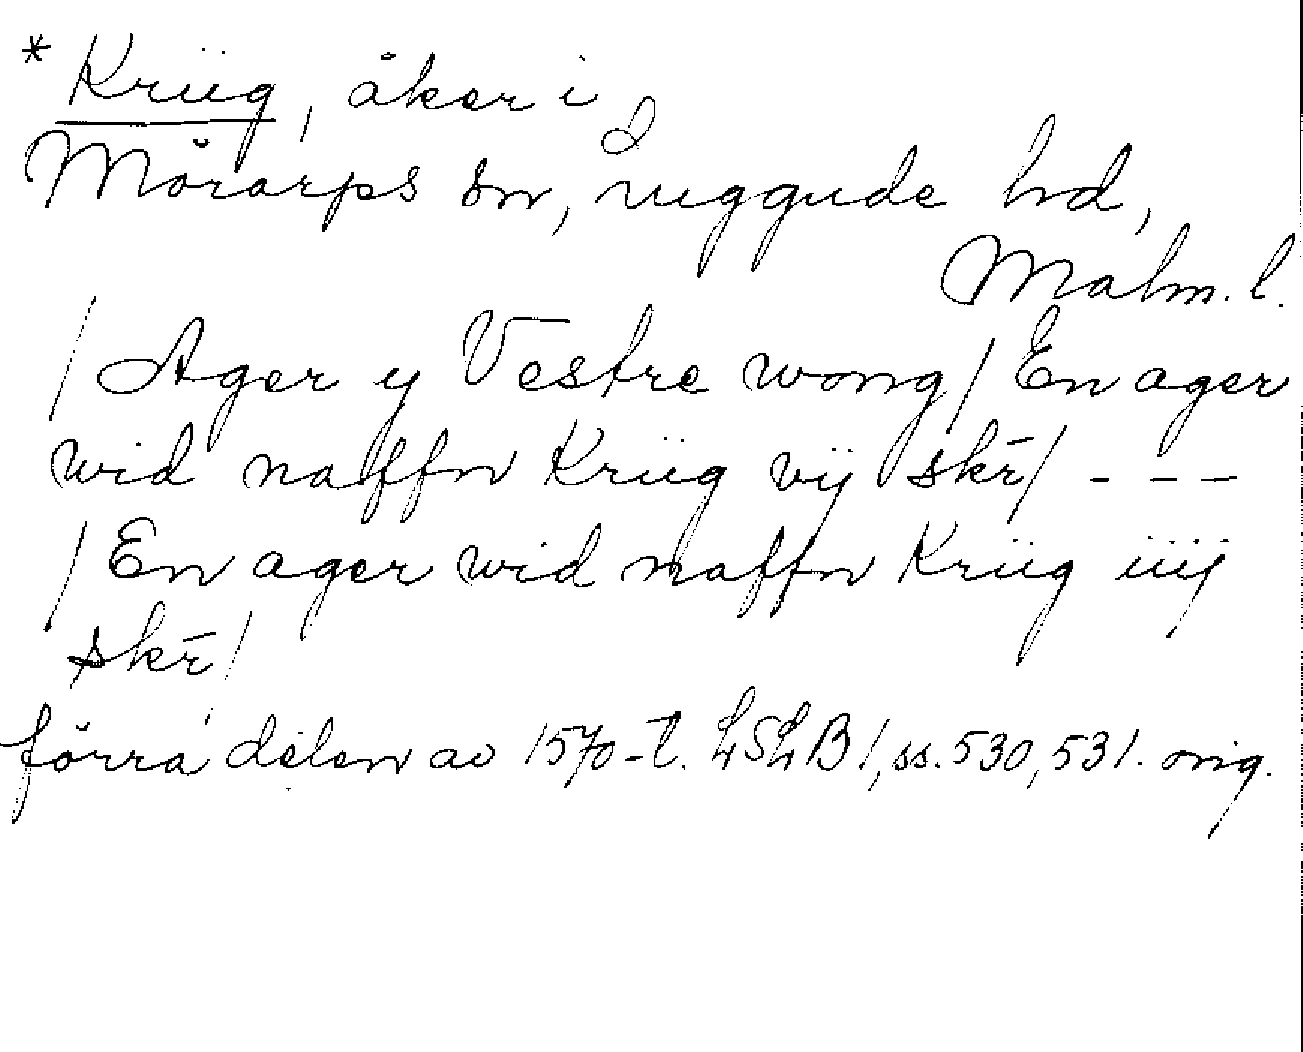 * Kriig, åker i
Mörarps sn, Luggude hd,
Malm. l.
/ Ager y Vestre wong / En ager
wid naffn Kriig vij skr̄ / - - -
/ En ager wid naffn Kriig iiij
skr̄ /
förra delen av 1570-t. LSLB 1, ss. 530, 531. orig.